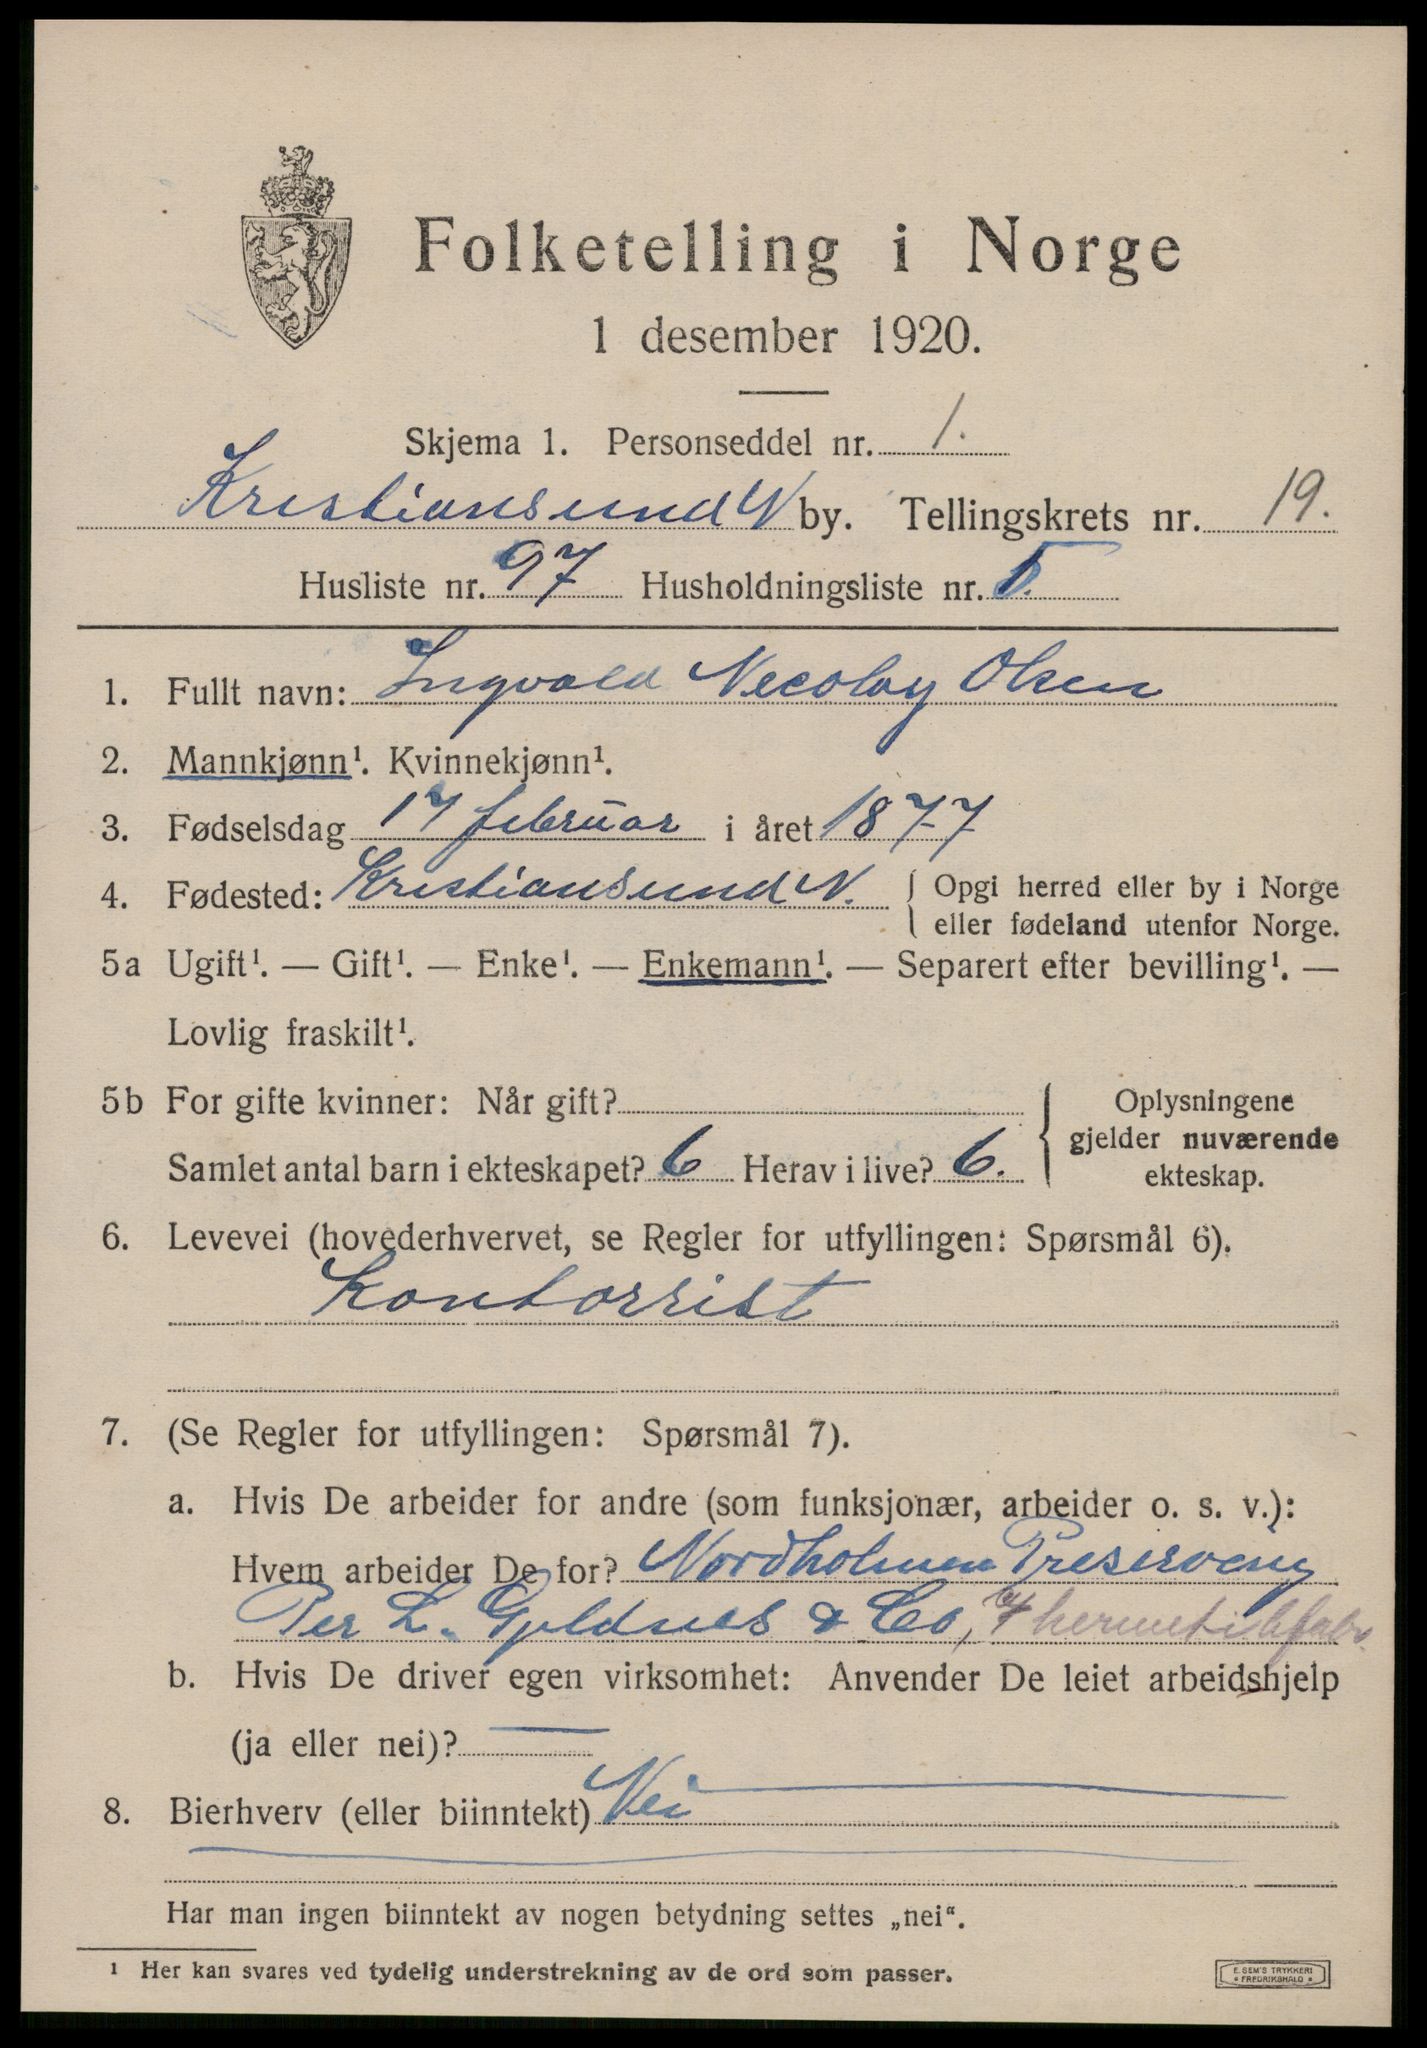 Folketelling i Norge
1 desember 1920.
Skjema 1. Personseddel nr. 1.
Kristiansund N by. Tellingskrets nr. 19.
Husliste nr. 97 Husholdningsliste nr. 5.
1. Fullt navn: Ingvald Necolay Olsen
2. Mannkjønn¹. Kvinnekjønn¹.
3. Fødselsdag 17 februar i året 1877
4. Fødested: Kristiansund N. { Opgi herred eller by i Norge
eller fødeland utenfor Norge.
5a Ugift¹. — Gift¹. — Enke¹. — Enkemann¹. — Separert efter bevilling¹. —
Lovlig fraskilt¹.
5b For gifte kvinner: Når gift?
Samlet antal barn i ekteskapet? 6 Herav i live? 6.
Oplysningene
gjelder nuværende
ekteskap.
6. Levevei (hovederhvervet, se Regler for utfyllingen: Spørsmål 6).
Kontorrist
7. (Se Regler for utfyllingen: Spørsmål 7).
a. Hvis De arbeider for andre (som funksjonær, arbeider o. s. v.):
Hvem arbeider De for? Nordholmen Preserveng
Per L. Gjeldnes & Co, hermetikfabr.
b. Hvis De driver egen virksomhet: Anvender De leiet arbeidshjelp
(ja eller nei)? —
8. Bierhverv (eller biinntekt) Nei
Har man ingen biinntekt av nogen betydning settes „nei“.
¹ Her kan svares ved tydelig understrekning av de ord som passer.
E. SEM'S TRYKKERI
FREDRIKSHALD